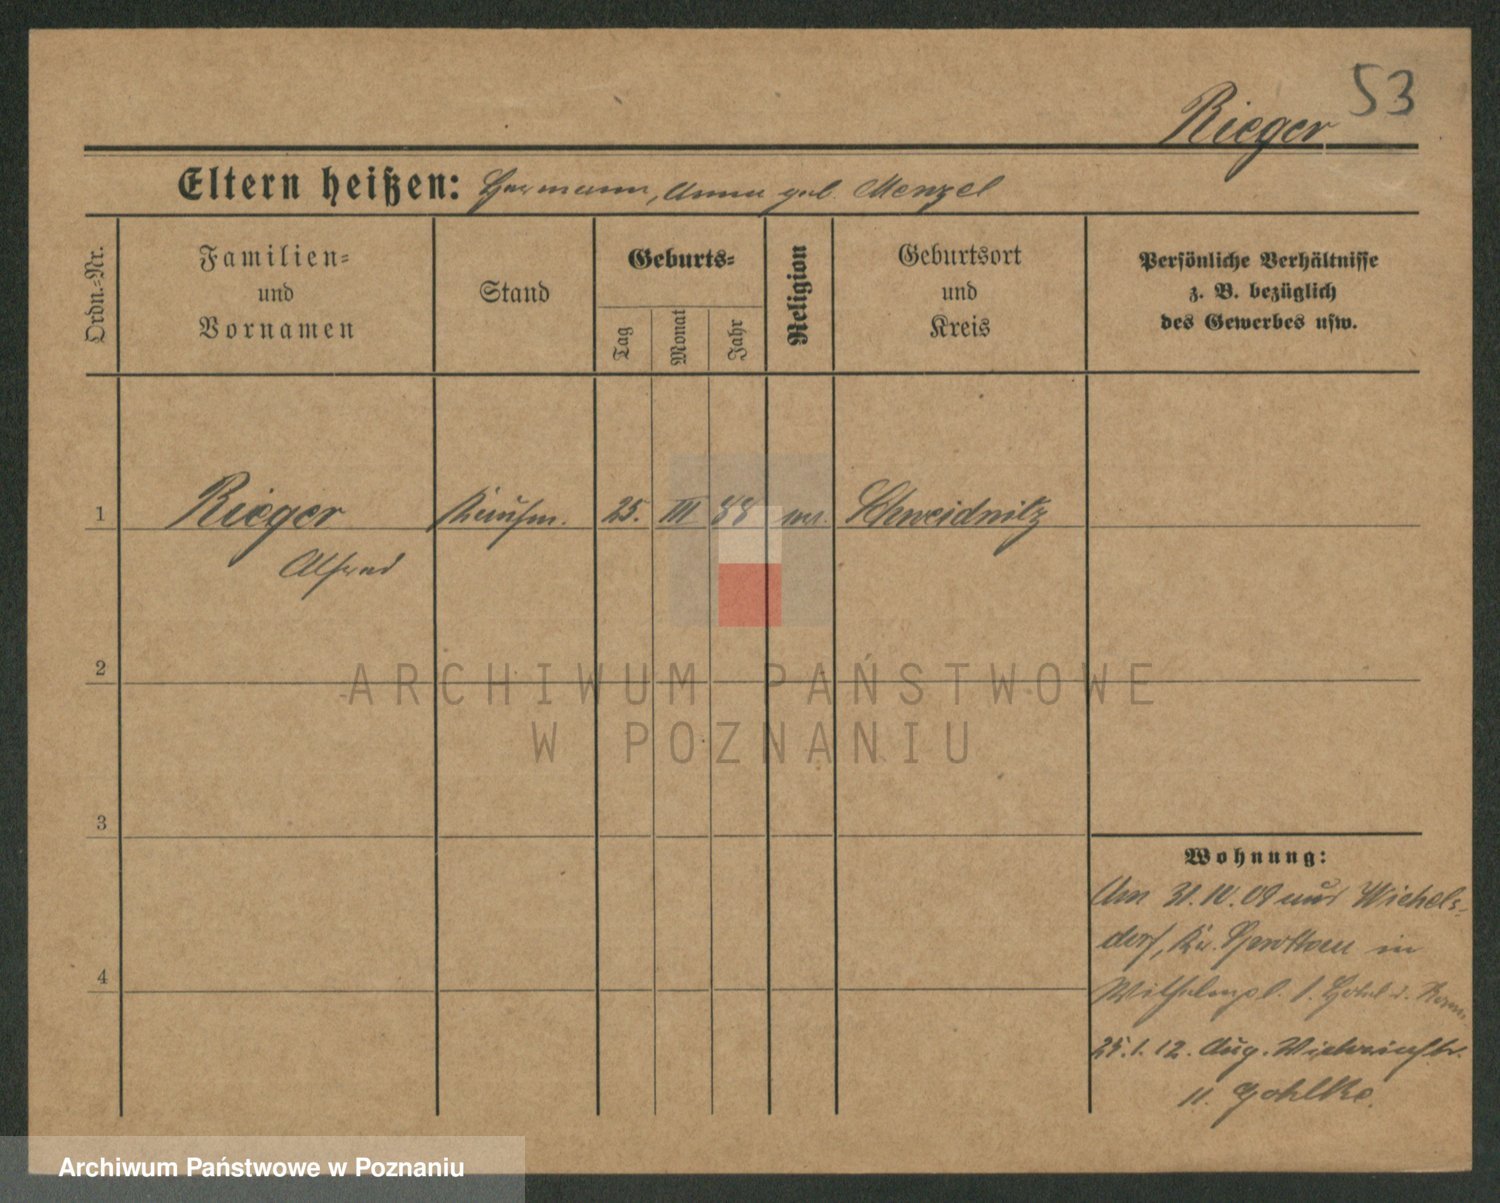 53
Rieger
Eltern heißen: Hermann, Anna geb. Menzel
Ordn.-Nr.
Familien-
und
Vornamen
Stand
Geburts-
Tag
Monat
Jahr
Religion
Geburtsort
und
Kreis
Persönliche Verhältnisse
z. B. bezüglich
des Gewerbes usw.
1
Rieger
Alfred
Kaufm.
25.
III
88
Schweidnitz
2
ARCHIWUM PAŃSTWOWE
W POZNANIU
3
4
Wohnung:
Am 31. 10. 09 aus Wichels-
dorf, Kr. Sprottau in
Wilhelmpl. 1. Hotel d. Rom.
25. 1. 12. Aug. Viktoriastr.
11. Gohlke.
Archiwum Państwowe w Poznaniu